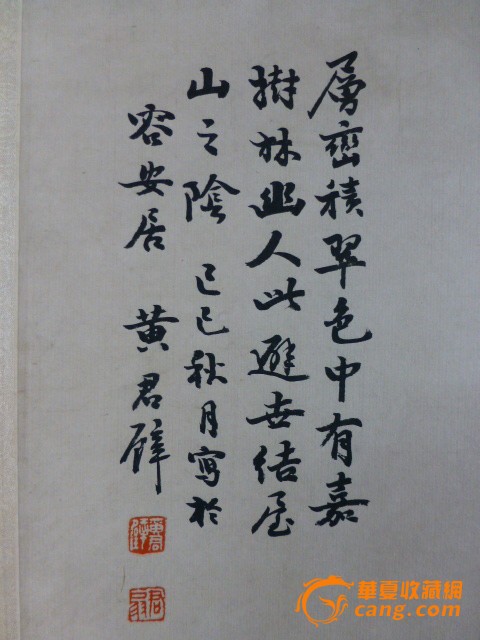 層巒積翠色中有嘉
樹林幽人此避世結屋
山之陰 己巳秋月寫於
容安居 黄君璧
華夏收藏網
cang.com